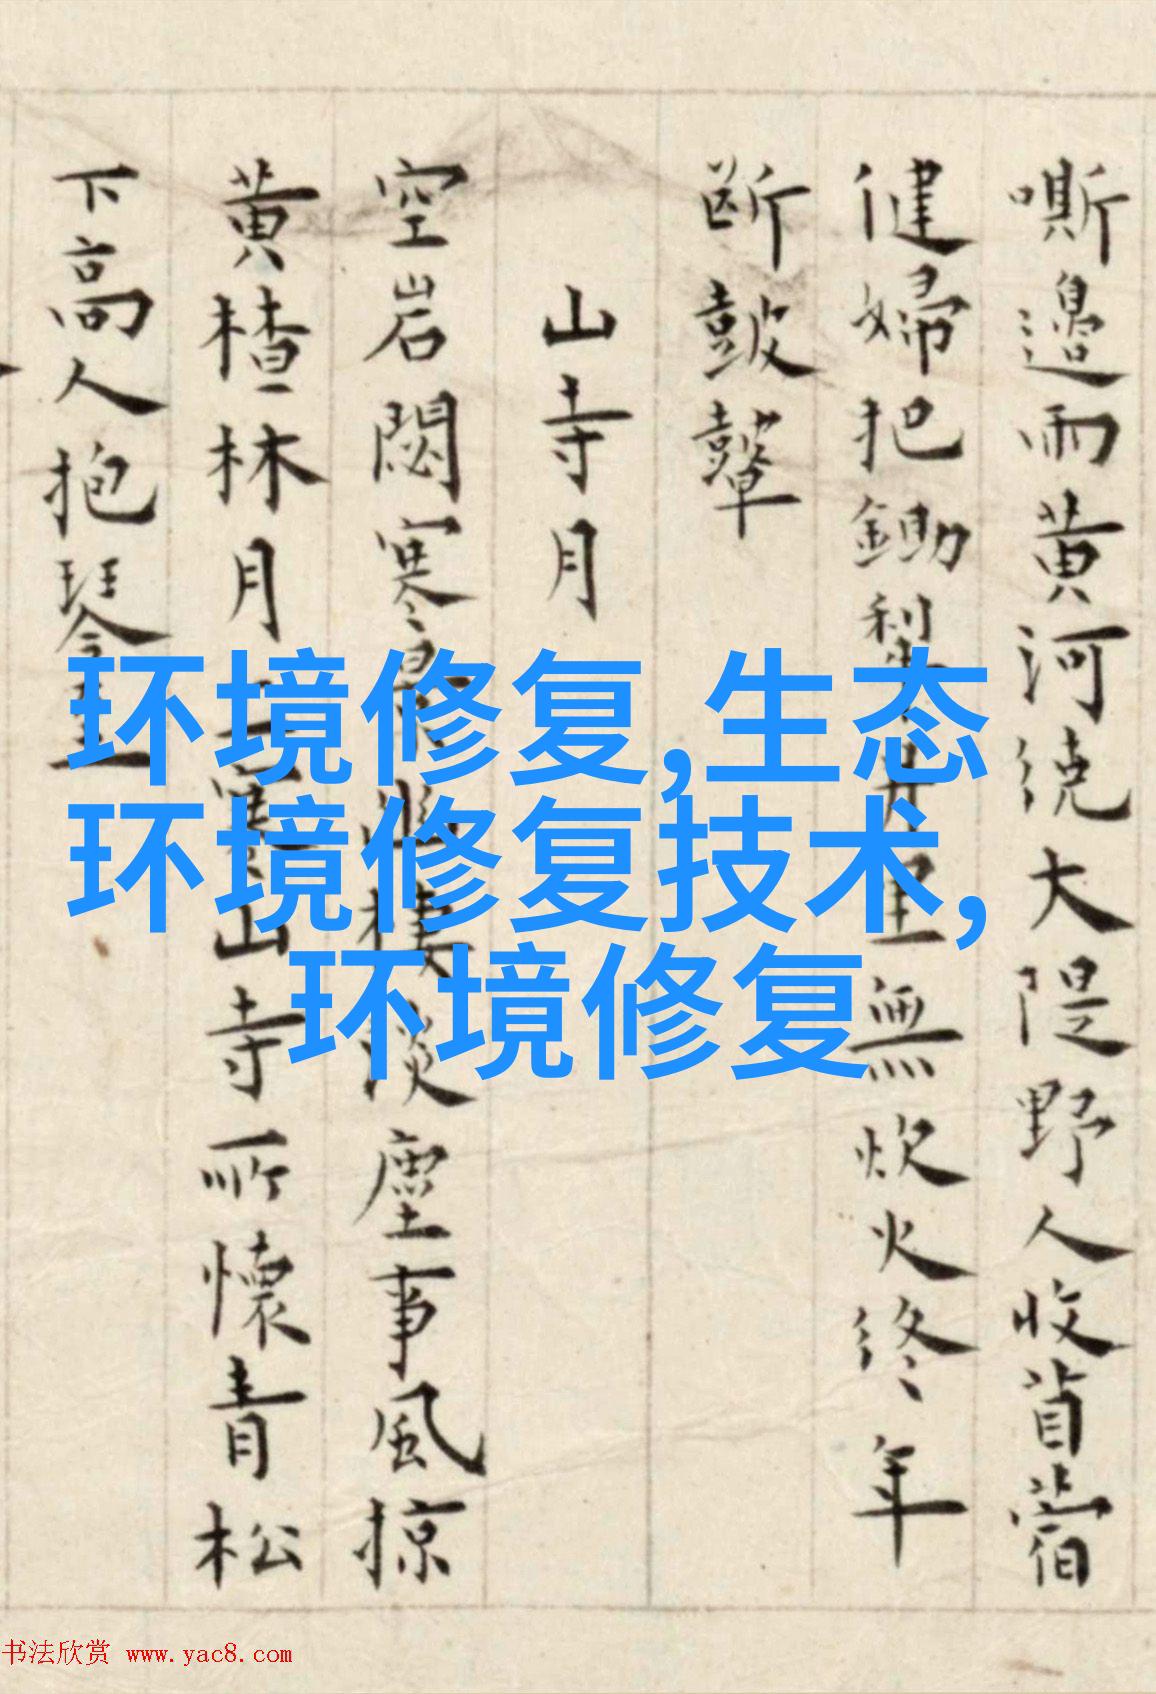 嘶邉雨黄河绕大隄野人收苜蓿
健婦把鋤犁井里無炊火终年
断鼓鼙
山寺月
空岩閟寒淡塵事風掠
黄楂林月山寺所懷青松
下高人抱琴
环境修复,生态
环境修复技术,
环境修复
书法欣赏 www.yac8.com